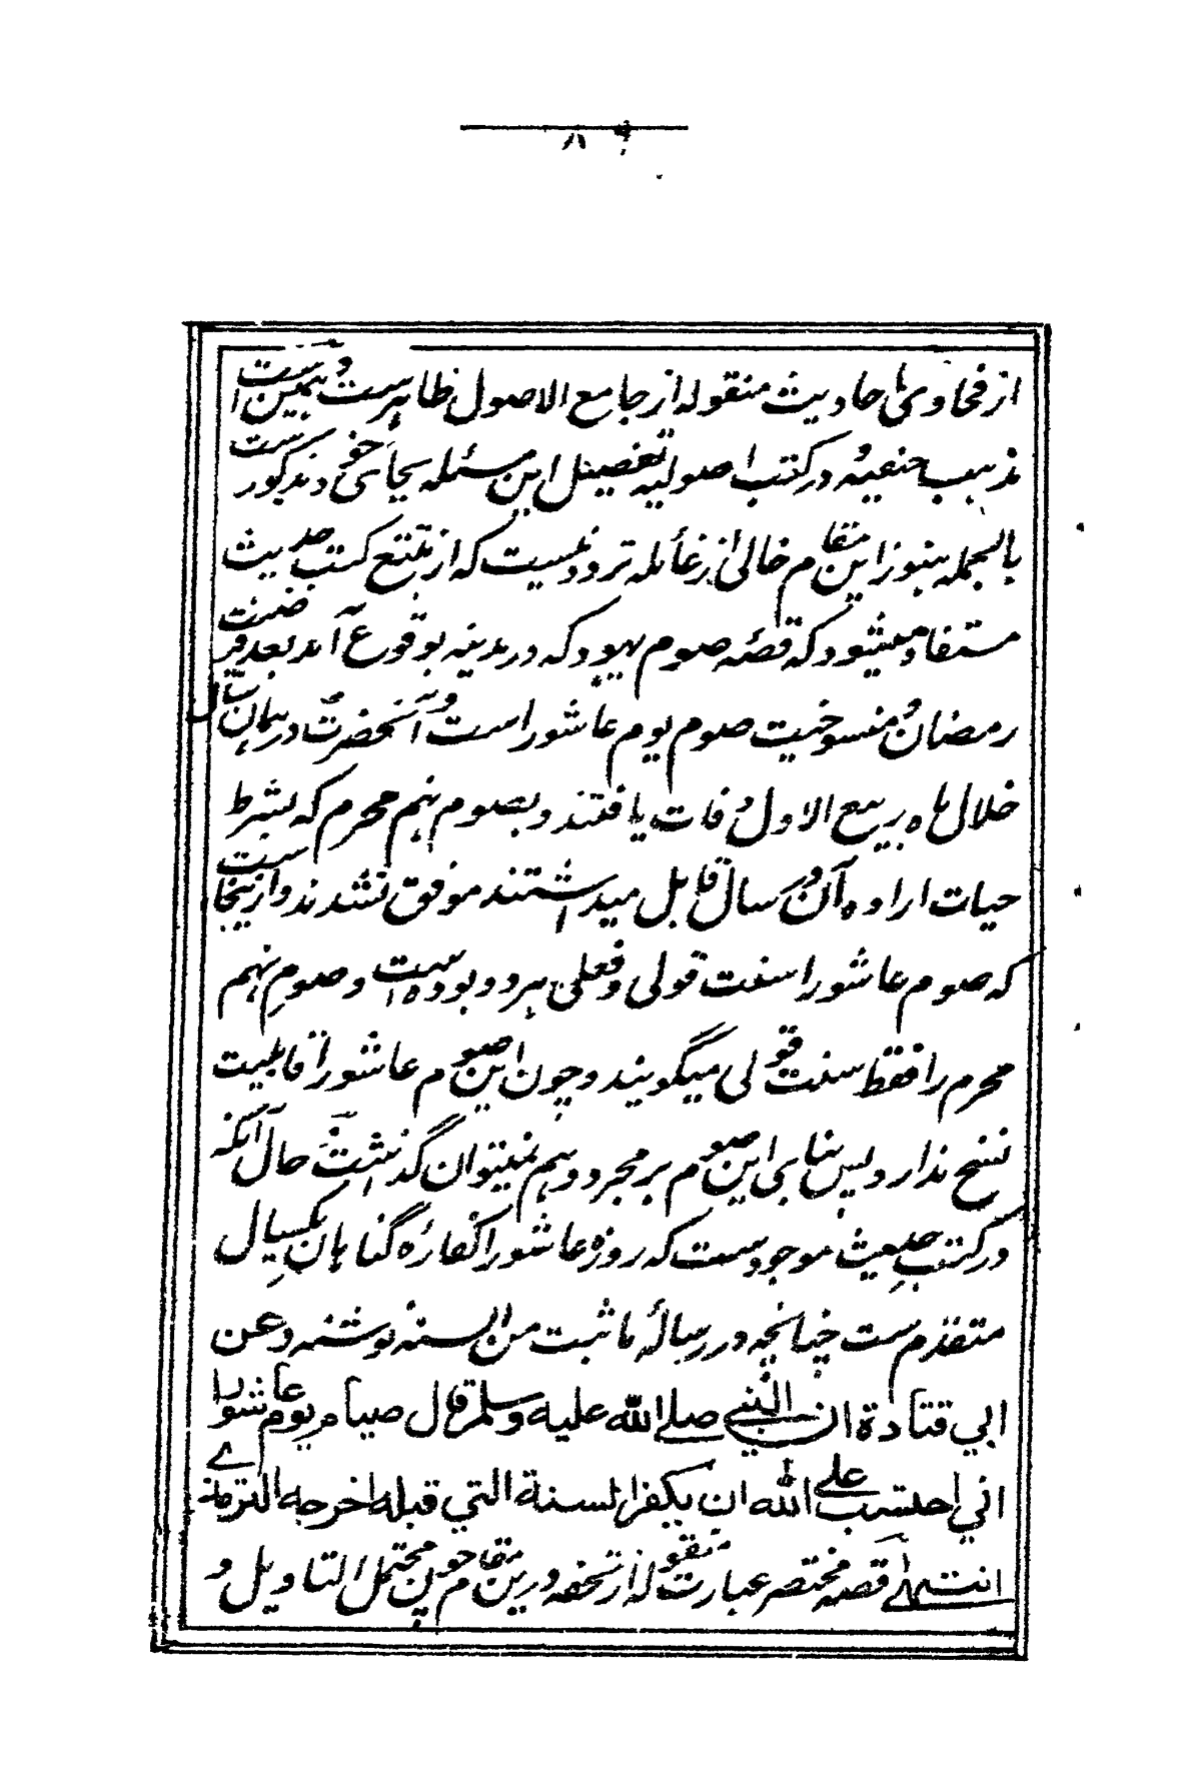 ۸۱
از فحاوی احادیث منقوله از جامع الاصول ظاهرست و همین است
مذهب حنفیه و در کتب اصولیه تفصیل این مسئله بجای خود مذکورست
بالجمله هنوز این مقام خالی از غائله تردد نیست که از تتبع کتب حدیث
مستفاد میشود که قصه صوم یهود که در مدینه بوقوع آمد بعد فرضیت
رمضان و منسوخیت صوم یوم عاشورا است و آنحضرت در همان سال
خلال ماه ربیع الاول وفات یافتند و بصوم نهم محرم که بشرط
حیات اراده آن در سال قابل میداشتند موفق نشدند و ازینجاست
که صوم عاشورا سنت قولی و فعلی هر دو بوده است و صوم نهم
محرم را فقط سنت قولی میگویند و چون این صوم عاشورا قابلیت
نسخ ندارد پس بنابی این صوم بر مجرد وهم نمیتوان گذشت حال آنکه
در کتب حدیث موجودست که روزه عاشورا کفاره گناهان یکسال
متقدم ست چنانچه در رساله ما ثبت من السنه نوشته و عن
ابي قتادة ان النبي صلے الله عليه وسلم قال صيام يوم عاشورا
اني احتسب علی الله ان يكفر السنة التي قبله اخرجه الترمذے
انتهے قصه مختصر عبارت منقوله از تحفه درین مقام چون محتمل التاویل و